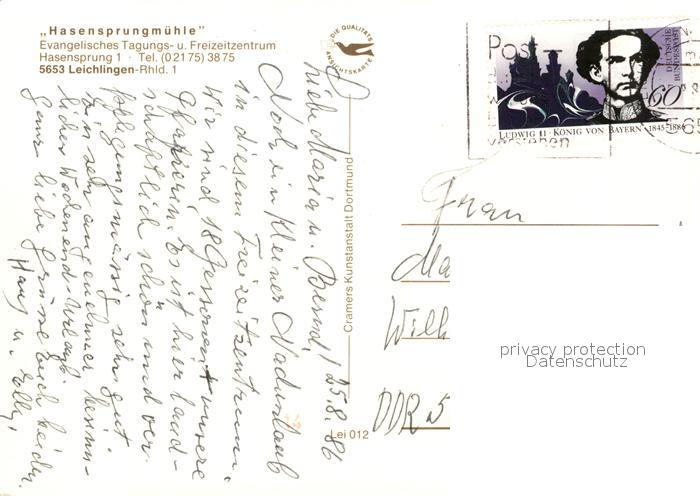 „Hasensprungmühle"
Evangelisches Tagungs- u. Freizeitzentrum
Hasensprung 1 · Tel. (0 21 75) 38 75
5653 Leichlingen-Rhld. 1
DIE QUALITÄTS
ANSICHTSKARTE
Post
verstehen
DEUTSCHE
BUNDESPOST
60
LUDWIG II · KÖNIG VON BAYERN · 1845-1886
25.8.86
Liebe Maria u. Bernd!
Noch ein kleiner Nachurlaub
in diesem Freizeitzentrum.
Wir sind 18 Personen + unsere
Pfarrerin. Es ist hier land-
schaftlich schön und ver-
pflegungsmässig sehr gut
Ein sehr angenehmer besinn-
licher Wochenend-Urlaub.
Ganz liebe Grüsse Euch beiden
Hans u. Elly,
Cramers Kunstanstalt Dortmund
Lei 012
Frau
Ma
Wilh
DDR 5
privacy protection
Datenschutz